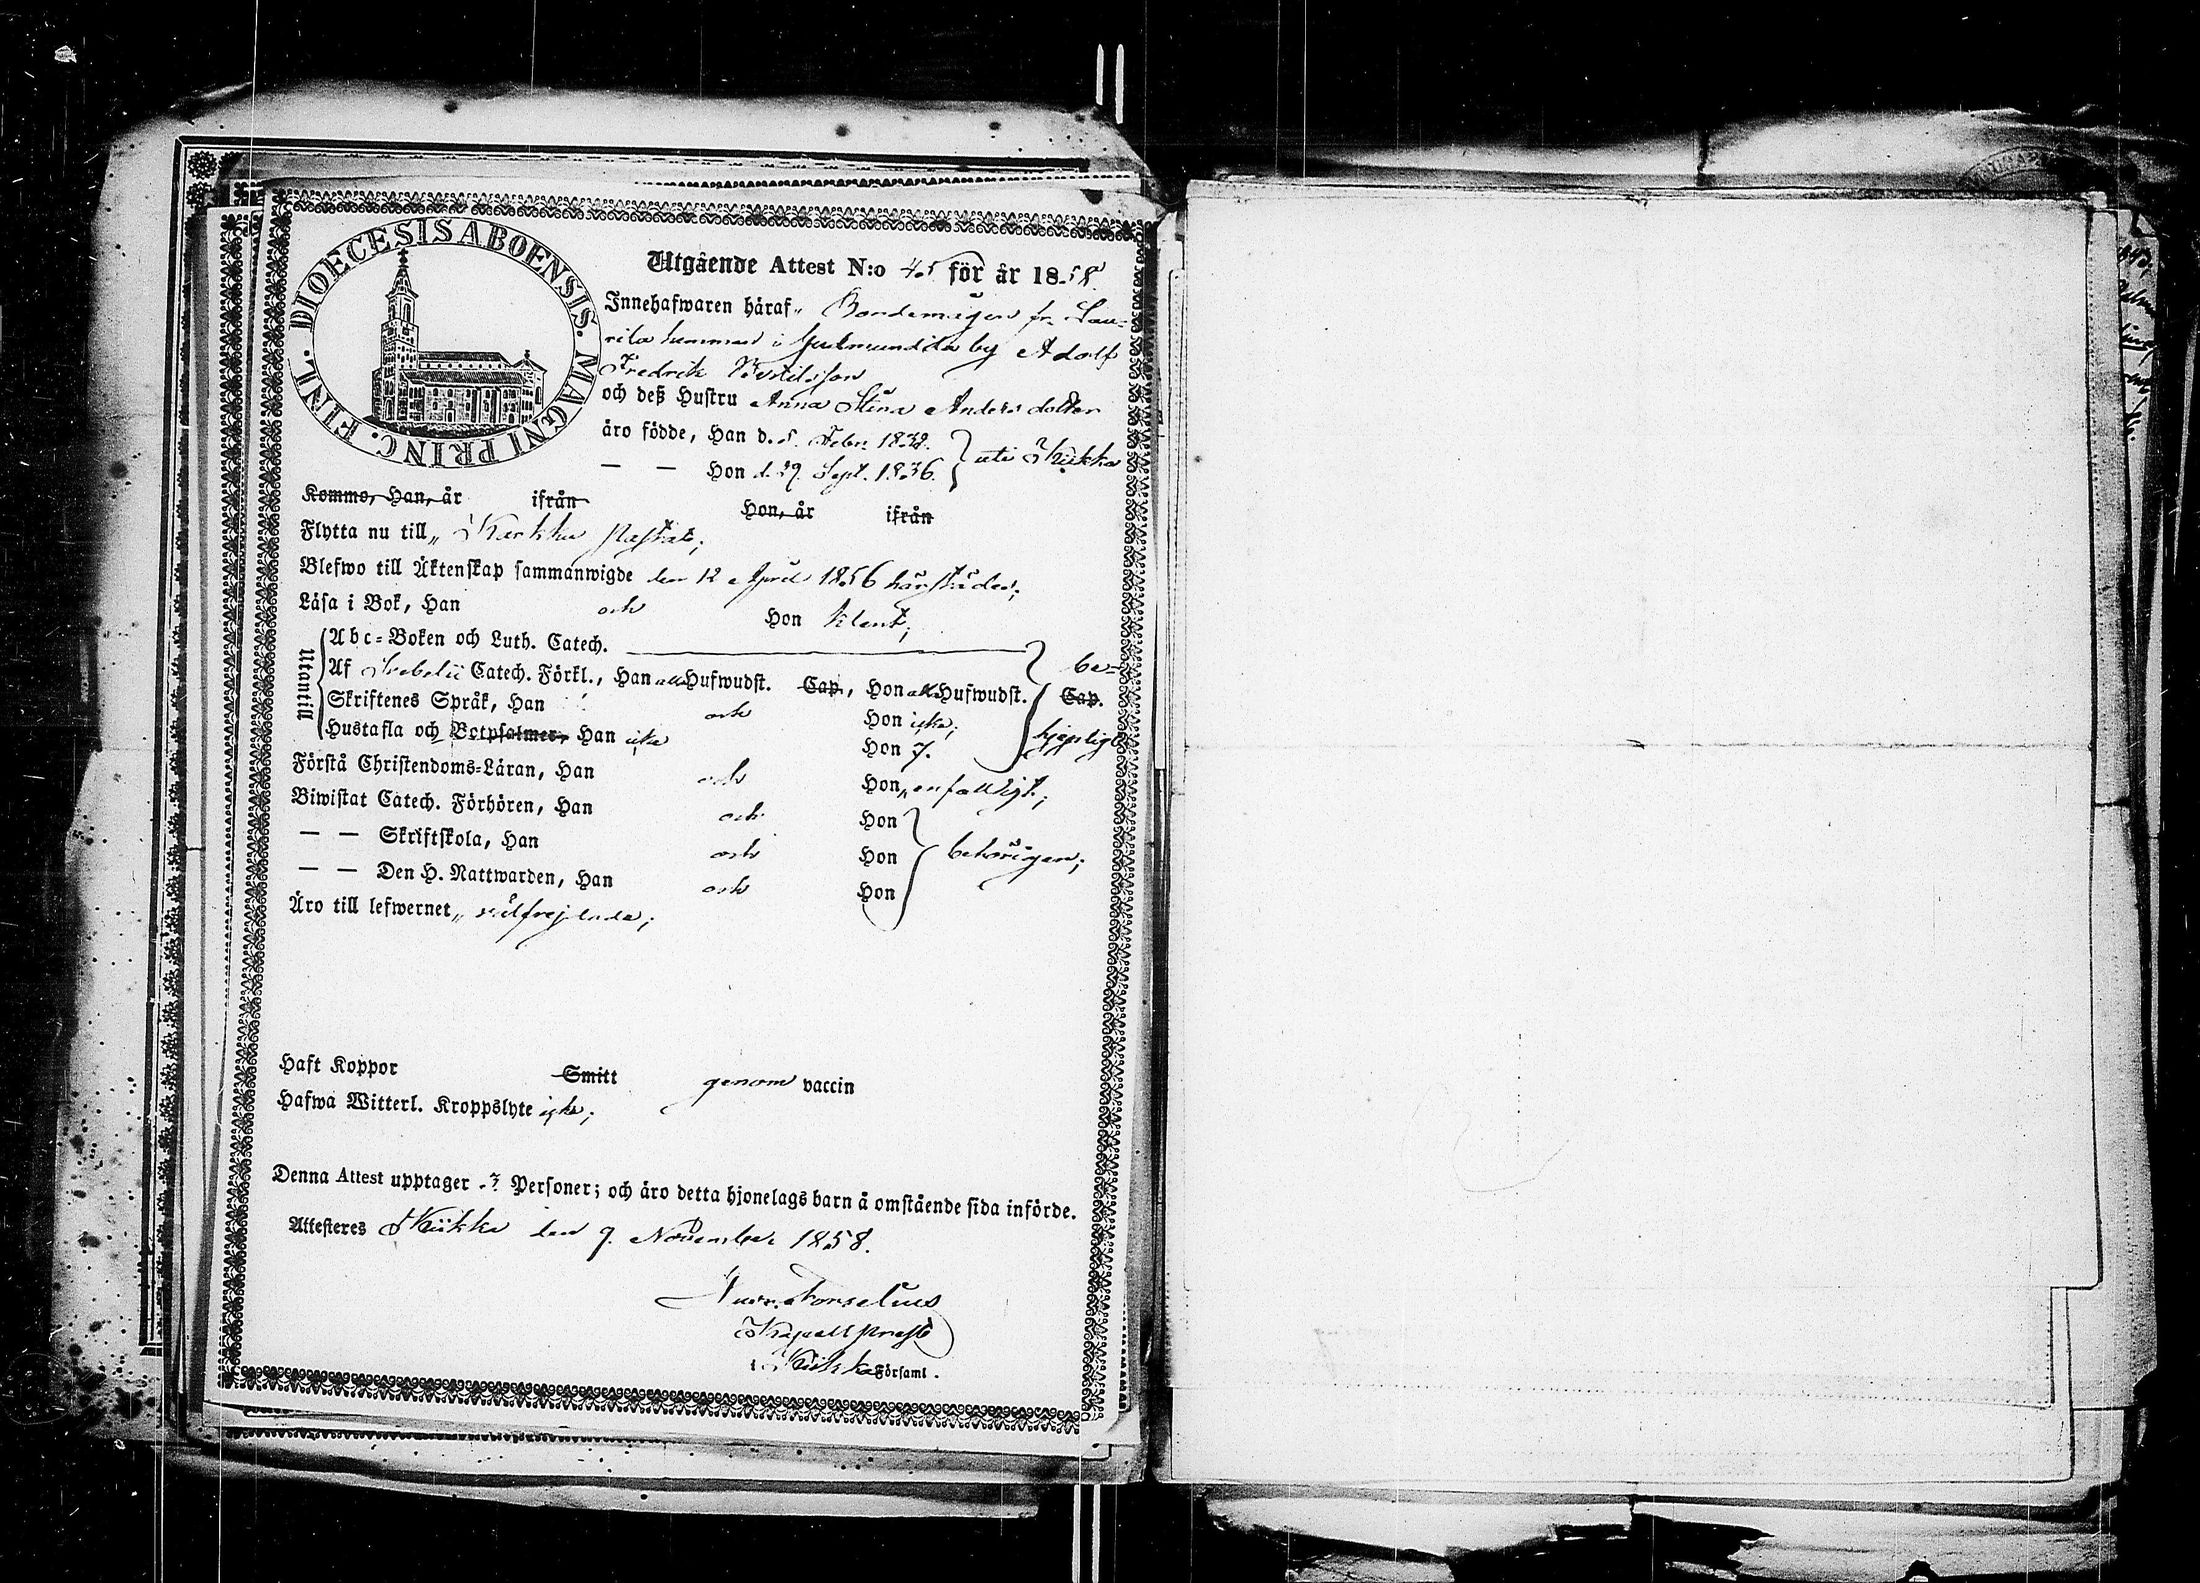 DIOECESIS ABOENSIS. MAGNI PRINC. FINL.
Utgående Attest N:o 45 för år 1858.
Innehafwaren häraf, Bondemågen fr. Lau-
rila hemman i Gudmundila by Adolf
Fredrik
och deß Hustru Anna Stina Anders dotter
äro födde, Han d. 5. Febr. 1832. uti Kiikka
— — Hon d. 29. Sept. 1836.
Kommo, Han, år ifrån Hon, år ifrån
Flytta nu till, Karkku Pastorat;
Blefwo till Äktenskap sammanwigde den 12 April 1856 härstädes;
Läsa i Bok, Han och Hon klent;
Utantill
Abc-Boken och Luth. Catech.
Af Svebelii Catech. Förkl., Han alla Hufwudst. Cap., Hon alla Hufwudst. Cap. be-
Skriftenes Språk, Han och Hon icke;
Hustafla och Botpsalmer, Han icke Hon d:o hjepligt
Förstå Christendoms-Läran, Han och Hon, enfaldigt;
Biwistat Catech. Förhören, Han och Hon
— — Skriftskola, Han och Hon behörigen;
— — Den H. Nattwarden, Han och Hon
Äro till lefwernet, välfrejdade;
Haft Koppor Smitt genom vaccin
Hafwa Witterl. Kroppslyte icke;
Denna Attest upptager 3 Personer; och äro detta hjonelags barn å omstående sida införde.
Attesteres Kiikka den 9. November 1858.
Kapell prest
i Kiikka Församl.